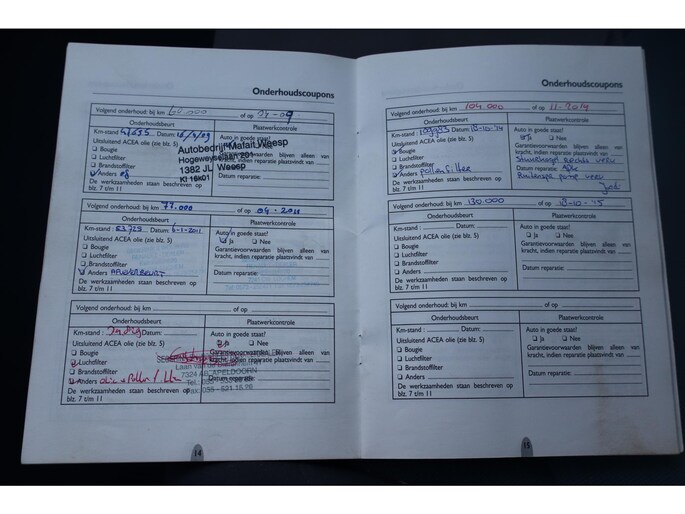 Onderhoudscoupons
Volgend onderhoud: bij km 60.000 of op
Onderhoudsbeurt Plaatwerkcontrole
Km-stand Datum: Auto in goede staat?
Uitsluitend ACEA olie (zie blz. 5) Ja Nee
Bougie
Luchtfilter
Brandstoffilter
Anders
De werkzaamheden staan beschreven op
blz. 7 t/m 11
Autobedrijf Mafait Weesp
Hogeweyselaan 201
1382 JL Weesp
Volgend onderhoud: bij km 77.000 of op 04-2011
Onderhoudsbeurt Plaatwerkcontrole
Km-stand : 63729 Datum: 6-1-2011 Auto in goede staat?
Uitsluitend ACEA olie (zie blz. 5) Ja Nee
Bougie Garantievoorwaarden blijven alleen van
Luchtfilter kracht, indien reparatie plaatsvindt van
Brandstoffilter Datum reparatie:
Anders
De werkzaamheden staan beschreven op
blz. 7 t/m 11
Volgend onderhoud: bij km of op
Onderhoudsbeurt Plaatwerkcontrole
Km-stand : Datum: Auto in goede staat?
Uitsluitend ACEA olie (zie blz. 5) Ja Nee
Bougie Garantievoorwaarden blijven alleen van
Luchtfilter kracht, indien reparatie plaatsvindt van
Brandstoffilter Datum reparatie:
Anders olie + Pollen filter
De werkzaamheden staan beschreven op
blz. 7 t/m 11
Laan van de
7324 AB APELDOORN
14
Onderhoudscoupons
Volgend onderhoud: bij km 104.000 of op 11-2014
Onderhoudsbeurt Plaatwerkcontrole
Km-stand : Datum: 13-10-'14 Auto in goede staat?
Uitsluitend ACEA olie (zie blz. 5) Ja Nee
Bougie Garantievoorwaarden blijven alleen van
Luchtfilter kracht, indien reparatie plaatsvindt van
Brandstoffilter rechts
Anders pollenfilter Datum reparatie:
De werkzaamheden staan beschreven op
blz. 7 t/m 11
Volgend onderhoud: bij km 130.000 of op 13-10-'15
Onderhoudsbeurt Plaatwerkcontrole
Km-stand : Datum: Auto in goede staat?
Uitsluitend ACEA olie (zie blz. 5) Ja Nee
Bougie Garantievoorwaarden blijven alleen van
Luchtfilter kracht, indien reparatie plaatsvindt van
Brandstoffilter Datum reparatie:
Anders
De werkzaamheden staan beschreven op
blz. 7 t/m 11
Volgend onderhoud: bij km of op
Onderhoudsbeurt Plaatwerkcontrole
Km-stand : Datum: Auto in goede staat?
Uitsluitend ACEA olie (zie blz. 5) Ja Nee
Bougie Garantievoorwaarden blijven alleen van
Luchtfilter kracht, indien reparatie plaatsvindt van
Brandstoffilter Datum reparatie:
Anders
De werkzaamheden staan beschreven op
blz. 7 t/m 11
15